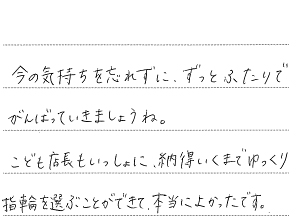 今の気持ちを忘れずに、ずっとふたりで
がんばっていきましょうね。
こども店長もいっしょに、納得いくまでゆっくり
指輪を選ぶことができて、本当によかったです。